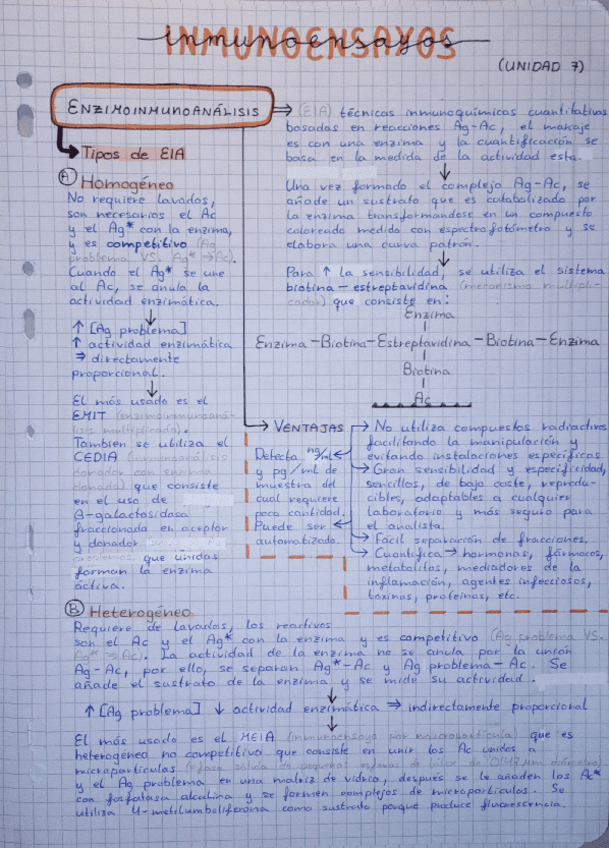 INMUNOENSAYOS
(UNIDAD 7)
ENZIMOINMUNOANÁLISIS ⇒ (EIA) técnicas inmunoquímicas cuantitativas
basadas en reacciones Ag-Ac, el marcaje
es con una enzima y la cuantificación se
basa en la medida de la actividad esta.
Una vez formado el complejo Ag-Ac, se
añade un sustrato que es catabolizado por
la enzima transformandose en un compuesto
coloreado medido con espectrofotómetro y se
elabora una curva patrón.
Para ↑ la sensibilidad, se utiliza el sistema
biotina-estreptavidina (mecanismo multipli-
cador) que consiste en:
Enzima
Enzima-Biotina-Estreptavidina-Biotina-Enzima
Biotina
Ac
Tipos de EIA
A) Homogéneo
No requiere lavados,
son necesarios el Ac
y el Ag* con la enzima,
y es competitivo (Ag
problema VS. Ag* → Ac).
Cuando el Ag* se une
al Ac, se anula la
actividad enzimática.
↑ [Ag problema]
↑ actividad enzimática
⇒ directamente
proporcional.
El más usado es el
EMIT (enzimoinmunoaná-
lisis multiplicado).
Tambien se utiliza el
CEDIA (inmunoanálisis
donador con enzima
clonada) que consiste
en el uso de
β-galactosidasa
fraccionada en aceptor
y donador
que unidas
forman la enzima
activa.
VENTAJAS
No utiliza compuestos radiactivos
facilitando la manipulación y
evitando instalaciones específicas.
Gran sensibilidad y especificidad,
sencillos, de bajo coste, reprodu-
cibles, adaptables a cualquier
laboratorio y más seguro para
el analista.
Fácil separación de fracciones.
Cuantifica → hormonas, fármacos,
metabolitos, mediadores de la
inflamación, agentes infecciosos,
toxinas, proteínas, etc.
Detecta ng/ml
y pg/ml de
muestra del
cual requiere
poca cantidad.
Puede ser
automatizado.
B) Heterogéneo
Requiere de lavados, los reactivos
son el Ac y el Ag* con la enzima y es competitivo (Ag problema VS.
Ag* → Ac). La actividad de la enzima no se anula por la unión
Ag-Ac, por ello, se separan Ag*-Ac y Ag problema-Ac. Se
añade el sustrato de la enzima y se mide su actividad.
↑ [Ag problema] ↓ actividad enzimática ⇒ indirectamente proporcional
El más usado es el MEIA (inmunoensayo por micropartícula) que es
heterogéneo no competitivo que consiste en unir los Ac unidos a
micropartículas (fase sólida de pequeñas esferas de látex de diámetro)
y el Ag problema en una matriz de vidrio, después se le añaden los Ac*
con fosfatasa alcalina y se forman complejos de micropartículas. Se
utiliza 4-metilumbeliferona como sustrato porque produce fluorescencia.